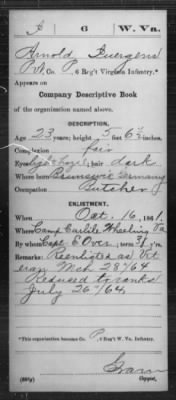 6 W. Va.
Arnold Juergens
Pvt, Co. P, 6 Reg't Virginia Infantry.*
Appears on
Company Descriptive Book
of the organization named above.
DESCRIPTION.
Age 23 years; height 5 feet 6½ inches.
Complexion fair
Eyes light hazel; hair dark
Where born Brunswic Germany
Occupation Butcher
ENLISTMENT.
When Oct. 16, 1861.
Where Camp Carlile Wheeling Va
By whom Capt E Over; term 3 y'rs.
Remarks: Reenlisted as Vet
eran Mch 28/64
Reduced to ranks
July 26/64
*This organization became Co. P, 6 Reg't W. Va. Infantry.
Copyist.